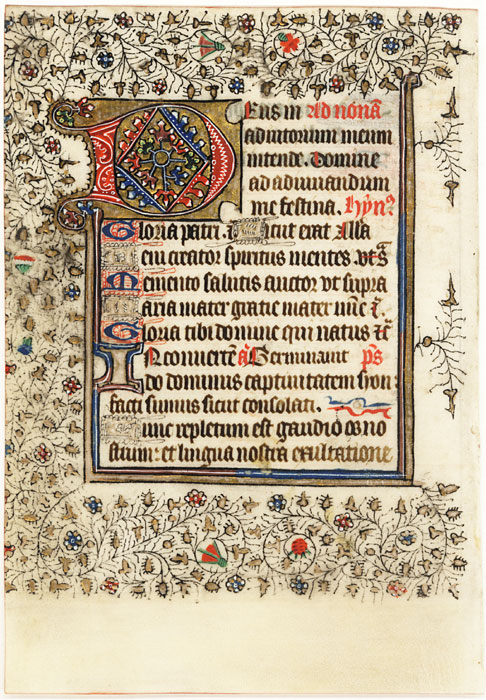 DEus in Ad nonā
adiutorium meum
intende. Domine
ad adiuuandum
me festina. Hỹn
Gloria patri. Sicut erat Alla
Ueni creator spiritus mentes
Memento salutis auctor vt supra
Maria mater gratie mater
Gloria tibi domine qui natus
IN conuertē ā Germinauit ps
do dominus captiuitatem sion
facti sumus sicut consolati.
Tunc repletum est gaudio os no
strum: et lingua nostra exultatione